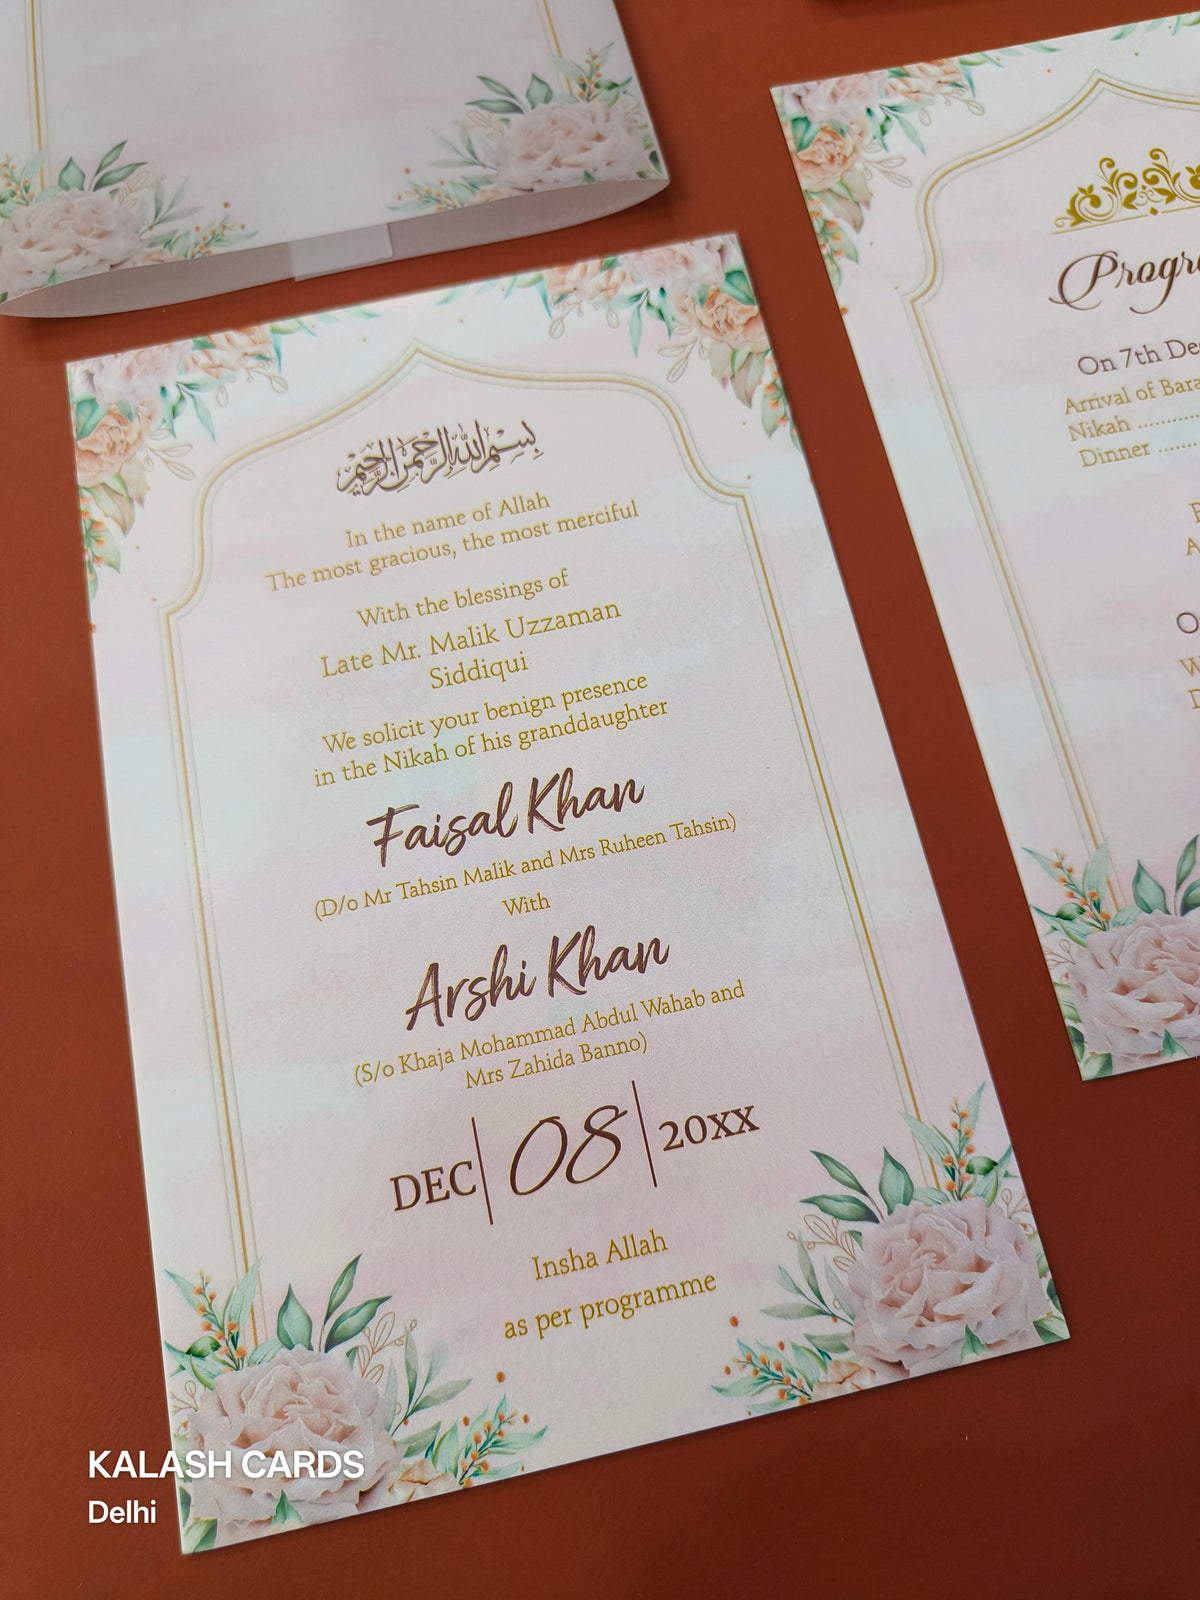 بسم الله الرحمن الرحيم
In the name of Allah
The most gracious, the most merciful
With the blessings of
Late Mr. Malik Uzzaman
Siddiqui
We solicit your benign presence
in the Nikah of his granddaughter
Faisal Khan
(D/o Mr Tahsin Malik and Mrs Ruheen Tahsin)
With
Arshi Khan
(S/o Khaja Mohammad Abdul Wahab and
Mrs Zahida Banno)
DEC 08 20XX
Insha Allah
as per programme
On 7th
Arrival of
Nikah ..........
Dinner .......
KALASH CARDS
Delhi